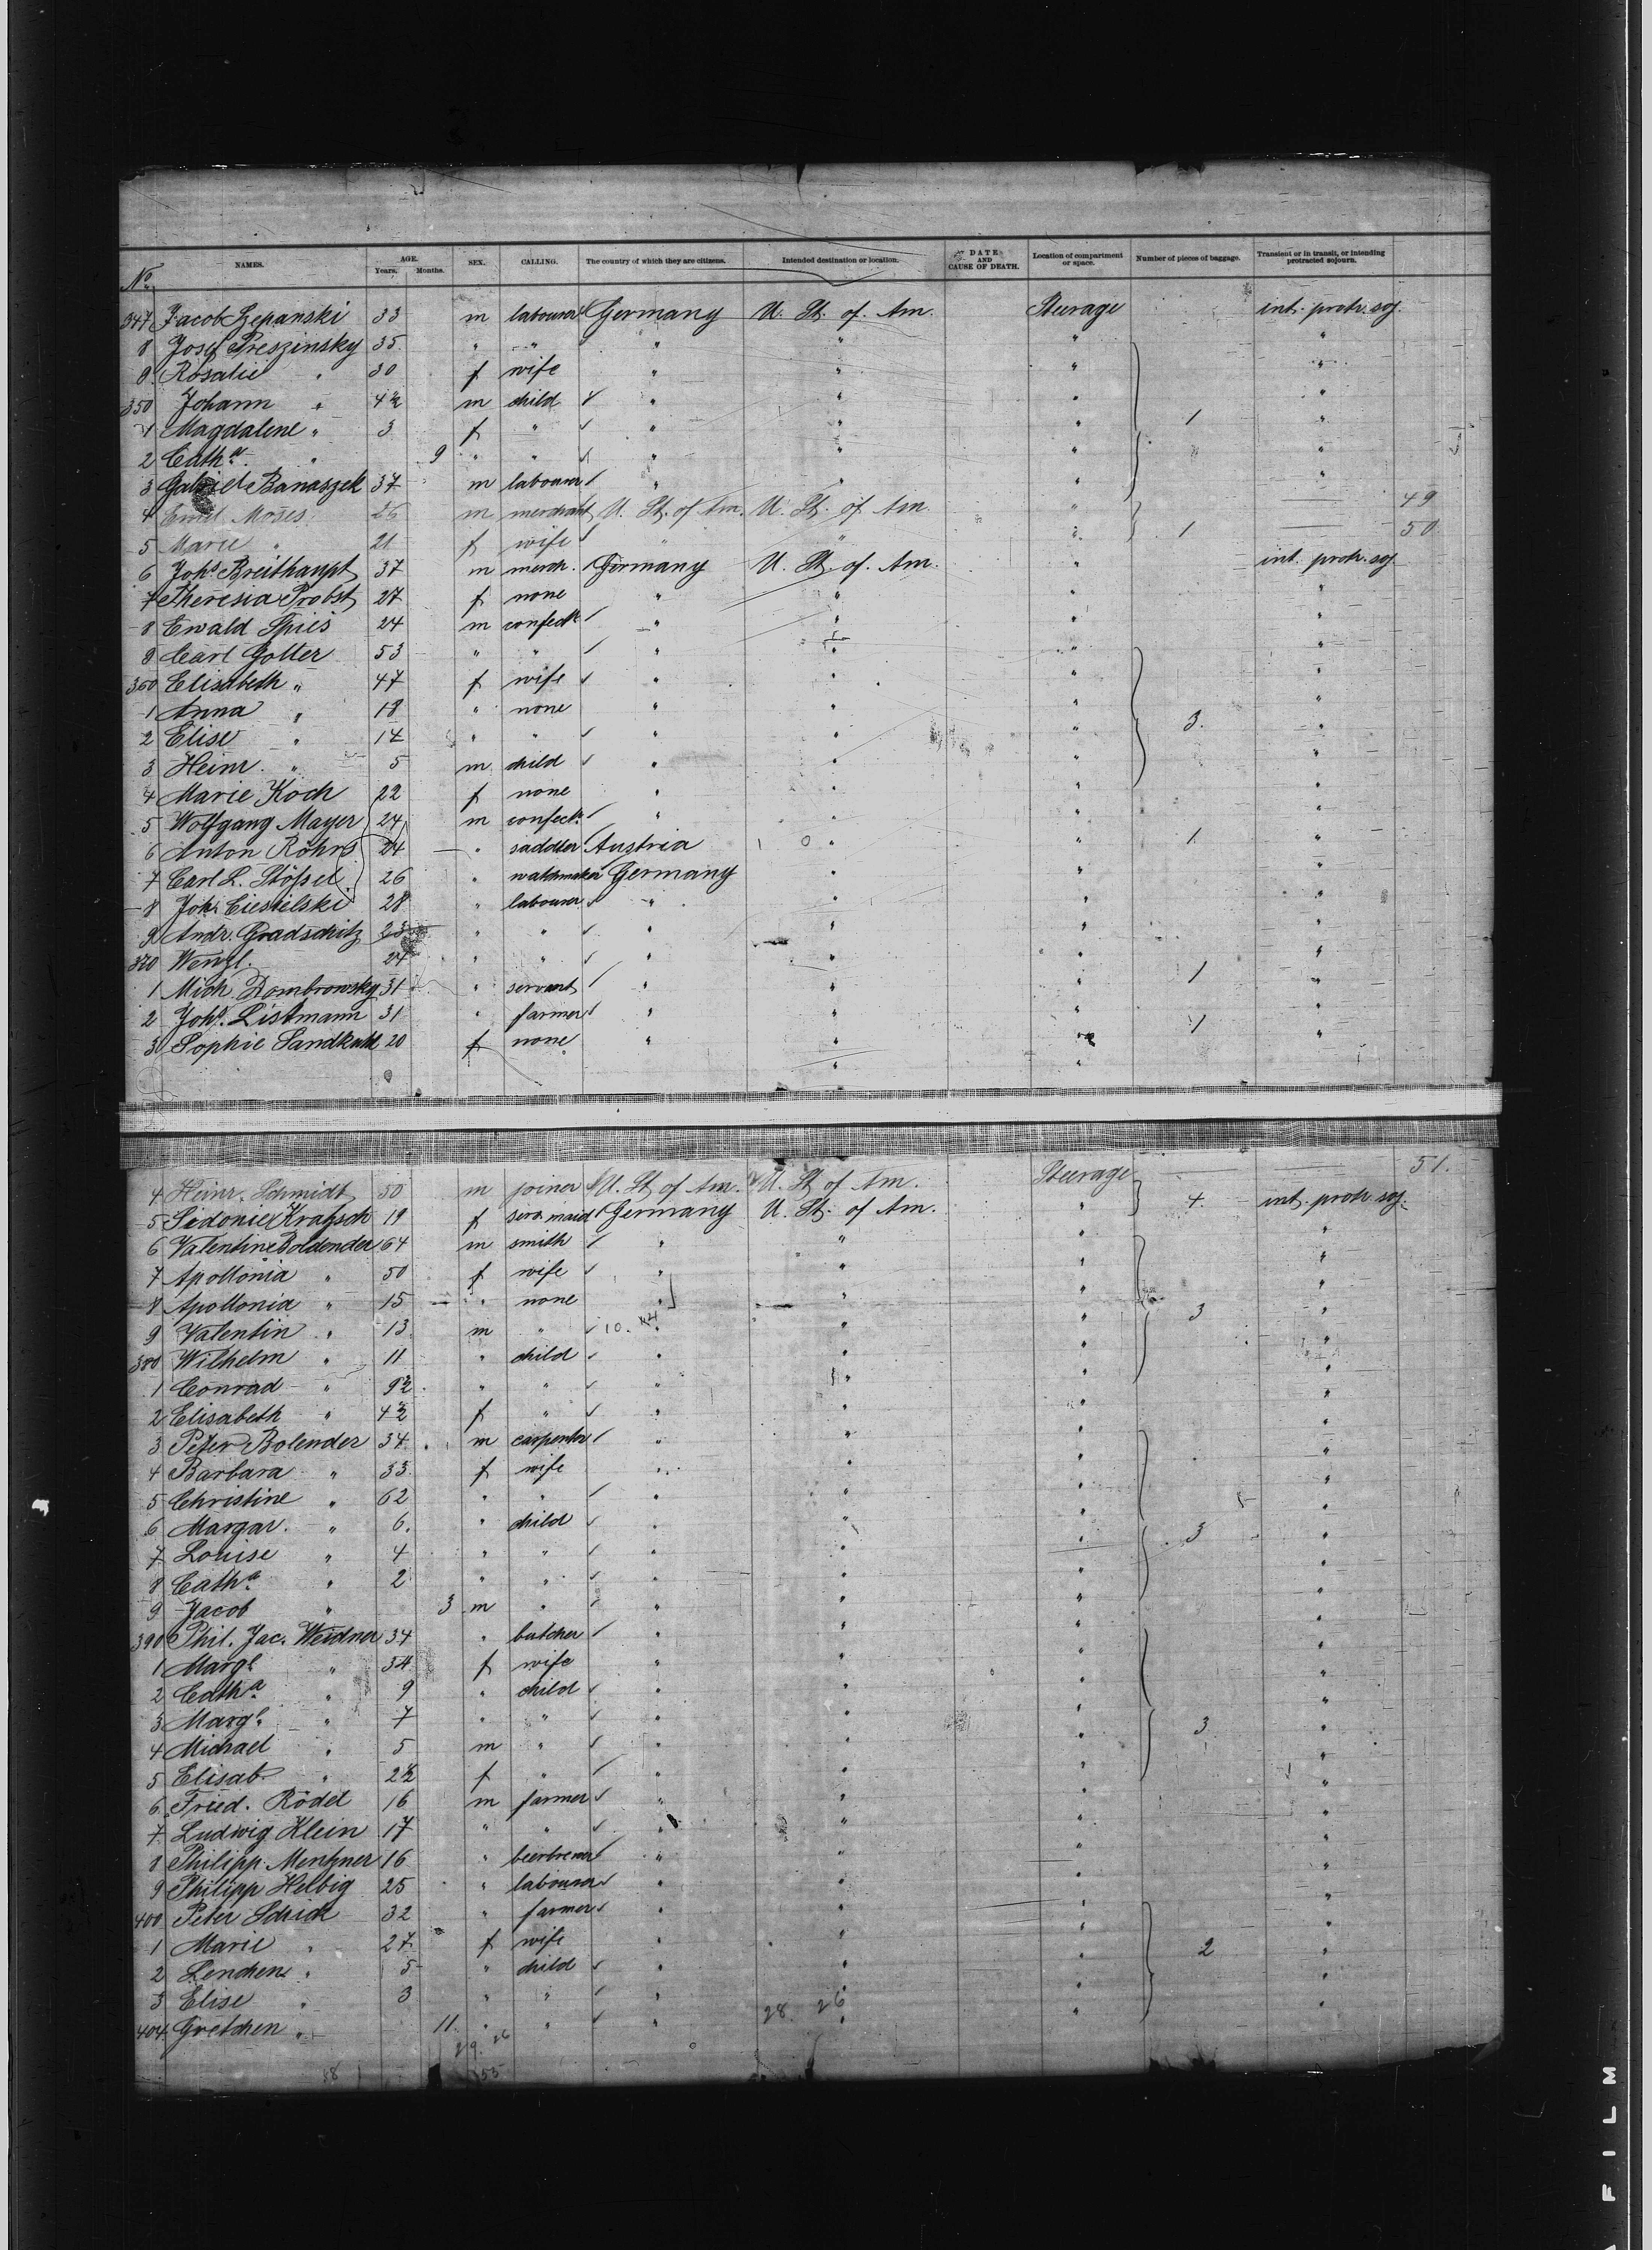 No. NAMES. AGE. Years. Months. SEX. CALLING. The country of which they are citizens. Intended destination or location. DATE AND CAUSE OF DEATH. Location of compartment or space. Number of pieces of baggage. Transient or in transit, or intending protracted sojourn.
347 Jacob Szepanski 33 m labourer Germany U. St. of Am. Steerage int. protr. soj.
8 Josef Preszinsky 35 " " " " " "
9 Rosalie " 30 f wife " " " "
350 Johann " 4½ m child " " " "
1 Magdalene " 3 f " " " " 1 "
2 Cath.a " 9 " " " " " "
3 Gabriel Banaszek 37 m labourer " " " "
4 Emil Moses 26 m merchant U. St. of Am. U. St. of Am. " 49
5 Marie " 21 f wife " " " 1 50
6 Johs. Breithaupt 37 m merch. Germany U. St. of Am. " int. protr. soj.
7 Theresia Probst 27 f none " " " "
8 Ewald Spies 24 m confectr. " " " "
9 Carl Golter 53 " " " " " "
360 Elisabeth " 47 f wife " " " "
1 Anna " 18 " none " " " "
2 Elise " 14 " " " " " 3. "
3 Heinr. " 5 m child " " " "
4 Marie Koch 22 f none " " " "
5 Wolfgang Mayer 24 m confectr. " " " "
6 Anton Röhrs 24 " saddler Austria " " 1 "
7 Carl L. Stößel 26 " watchmaker Germany " " "
8 Joh. Ciesielski 28 " labourer " " " "
9 Andr. Gradschitz 23 " " " " " "
370 Wenzl. 24 " " " " " "
1 Mich. Dombrowsky 31 " servant " " " 1 "
2 Johs. Listmann 31 " farmer " " " "
3 Sophie Sandkuhl 20 f none " " " 1 "
4 Heinr. Schmidt 50 m joiner U. St. of Am. U. St. of Am. Steerage 51.
5 Sidonie Kratzsch 19 f serv. maid Germany U. St. of Am. " 4. int. protr. soj.
6 Valentin Bolender 64 m smith " " " "
7 Apollonia " 50 f wife " " " "
8 Apollonia " 15 " none " " " "
9 Valentin " 13 m " " " " 3 "
380 Wilhelm " 11 " child " " " "
1 Conrad " 9½ " " " " " "
2 Elisabeth " 4½ f " " " " "
3 Peter Bolender 34 m carpenter " " " "
4 Barbara " 33 f wife " " " "
5 Christine " 62 " " " " " "
6 Margar. " 6 " child " " " 3 "
7 Louise " 4 " " " " " "
8 Cath.a " 2 " " " " " "
9 Jacob " 3 m " " " " "
390 Phil. Jac. Weidner 34 " butcher " " " "
1 Marg. " 34 f wife " " " "
2 Cath.a " 9 " child " " " "
3 Marg. " 7 " " " " " 3 "
4 Michael " 5 m " " " " "
5 Elisab. " 2½ f " " " " "
6 Fried. Rödel 16 m farmer " " " "
7 Ludwig Klein 17 " " " " " "
8 Philipp Mentzner 16 " beerbrewer " " " "
9 Philipp Helbig 25 " labourer " " " "
400 Peter Schick 32 " farmer " " " "
1 Marie " 27 f wife " " " 2 "
2 Lenchen " 5 " child " " " "
3 Elise " 3 " " " " " "
404 Gretchen " 11 " " " " " "
28. 26
29. 26
55
FILM